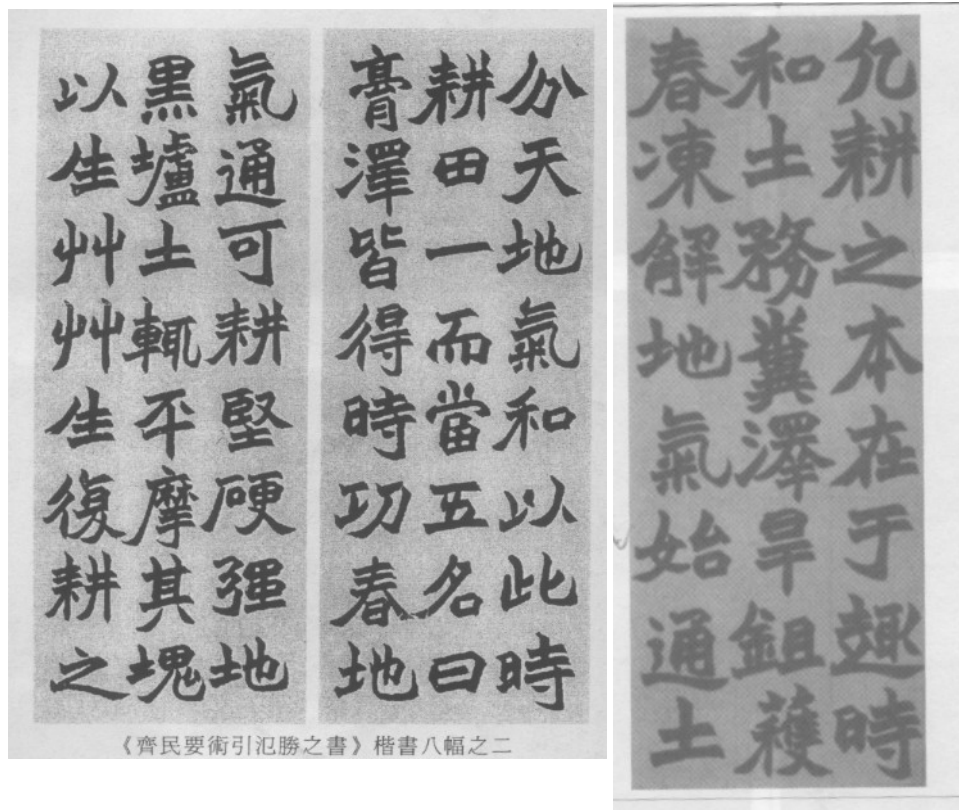 凡耕之本在于趣時
和土務糞澤旱鉏穫
春凍解地氣始通土
分天地氣和以此時
耕田一而當五名曰
膏澤皆得時功春地
氣通可耕堅硬强地
黑壚土輒平摩其塊
以生艸艸生復耕之
《齊民要術引氾勝之書》楷書八幅之二